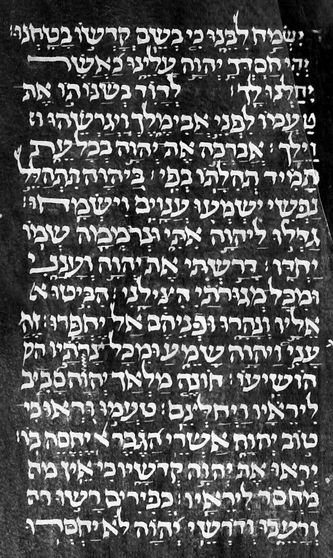 ישמח לבנו כי בשם קדשו בטחנו:
יהי חסדך יהוה עלינו כאשר
יחלנו לך: לדוד בשנותו את
טעמו לפני אבימלך ויגרשהו
וילך: אברכה את יהוה בכל עת
תמיד תהלתו בפי: ביהוה תתהלל
נפשי ישמעו ענוים וישמחו:
גדלו ליהוה אתי ונרוממה שמו
יחדו: דרשתי את יהוה וענני
ומכל מגורתי הצילני: הביטו א
אליו ונהרו ופניהם אל יחפרו: זה
עני ויהוה שמע ומכל צרתיו
הושיעו: חונה מלאך יהוה סביב
ליראיו ויחלצם: טעמו וראו כי
טוב יהוה אשרי הגבר יחסה בו:
יראו את יהוה קדשיו כי אין מח
מחסר ליראיו: כפירים רשו ור
ורעבו ודרשי יהוה לא יחסרו